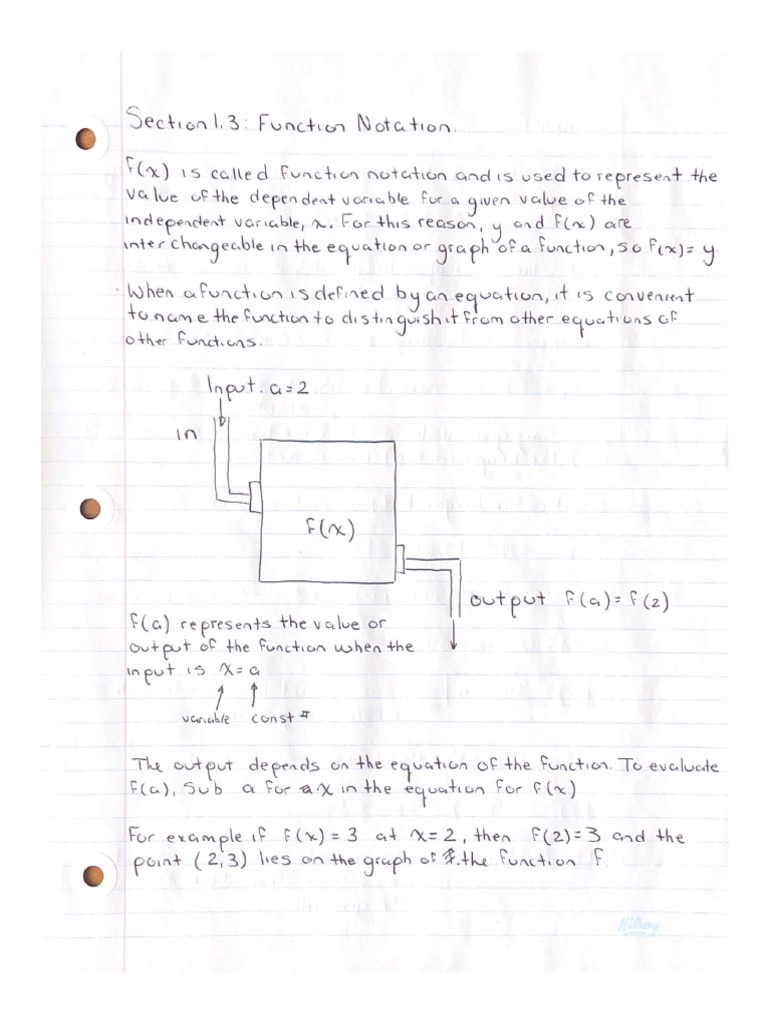 Section 1.3: Function Notation.
f(x) is called function notation and is used to represent the
value of the dependent variable for a given value of the
independent variable, x. For this reason, y and f(x) are
interchangeable in the equation or graph of a function, so f(x)= y.
When a function is defined by an equation, it is convenient
to name the function to distinguish it from other equations of
other functions.
Input. a=2
in
f(x)
output f(a)= f(2)
f(a) represents the value or
output of the function when the
input is x=a
variable const #
The output depends on the equation of the function. To evaluate
f(a), sub a for x in the equation for f(x)
For example if f(x)=3 at x=2, then f(2)=3 and the
point (2,3) lies on the graph of the function f.